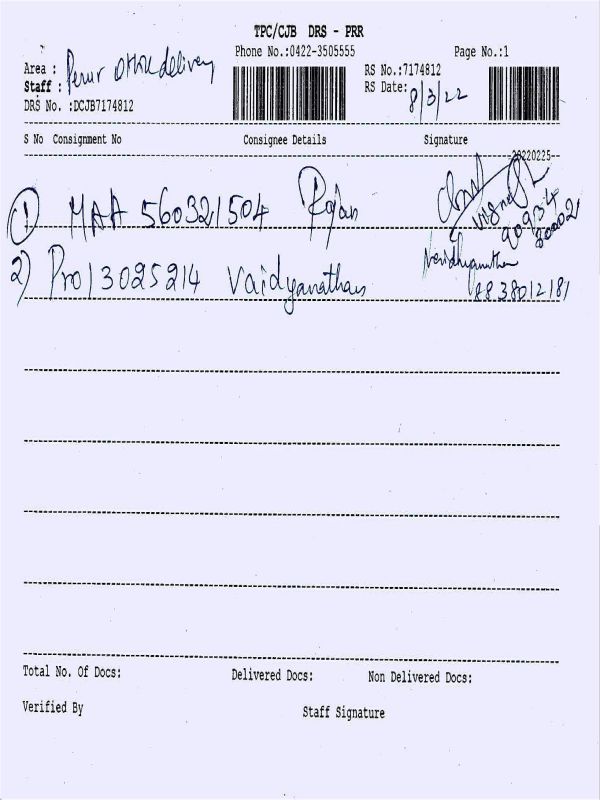 TPC/CJB DRS - PRR
Phone No.:0422-3505555 Page No.:1
Area : Perur office delivery
RS No.:7174812
Staff :
RS Date: 8/3/22
DRS No. :DCJB7174812
S No Consignment No Consignee Details Signature
20220225
1) MAA 560321504 Rajan
Vignesh
90934
80002
2) Pro13025214 Vaidyanathan
Vaidhyanathan
8838012181
Total No. Of Docs: Delivered Docs: Non Delivered Docs:
Verified By Staff Signature